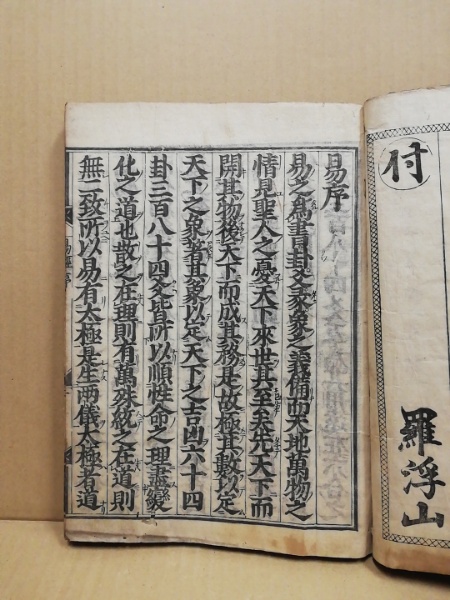 付
羅浮山
易序
易之爲書卦爻彖象之義備而天地萬物之
情見聖人之憂天下來世其至矣先天下而
開其物後天下而成其務是故極其數以定
天下之象著其象以定天下之吉凶六十四
卦三百八十四爻皆所以順性命之理盡變
化之道也散之在理則有萬殊統之在道則
無二致所以易有太極是生兩儀太極者道